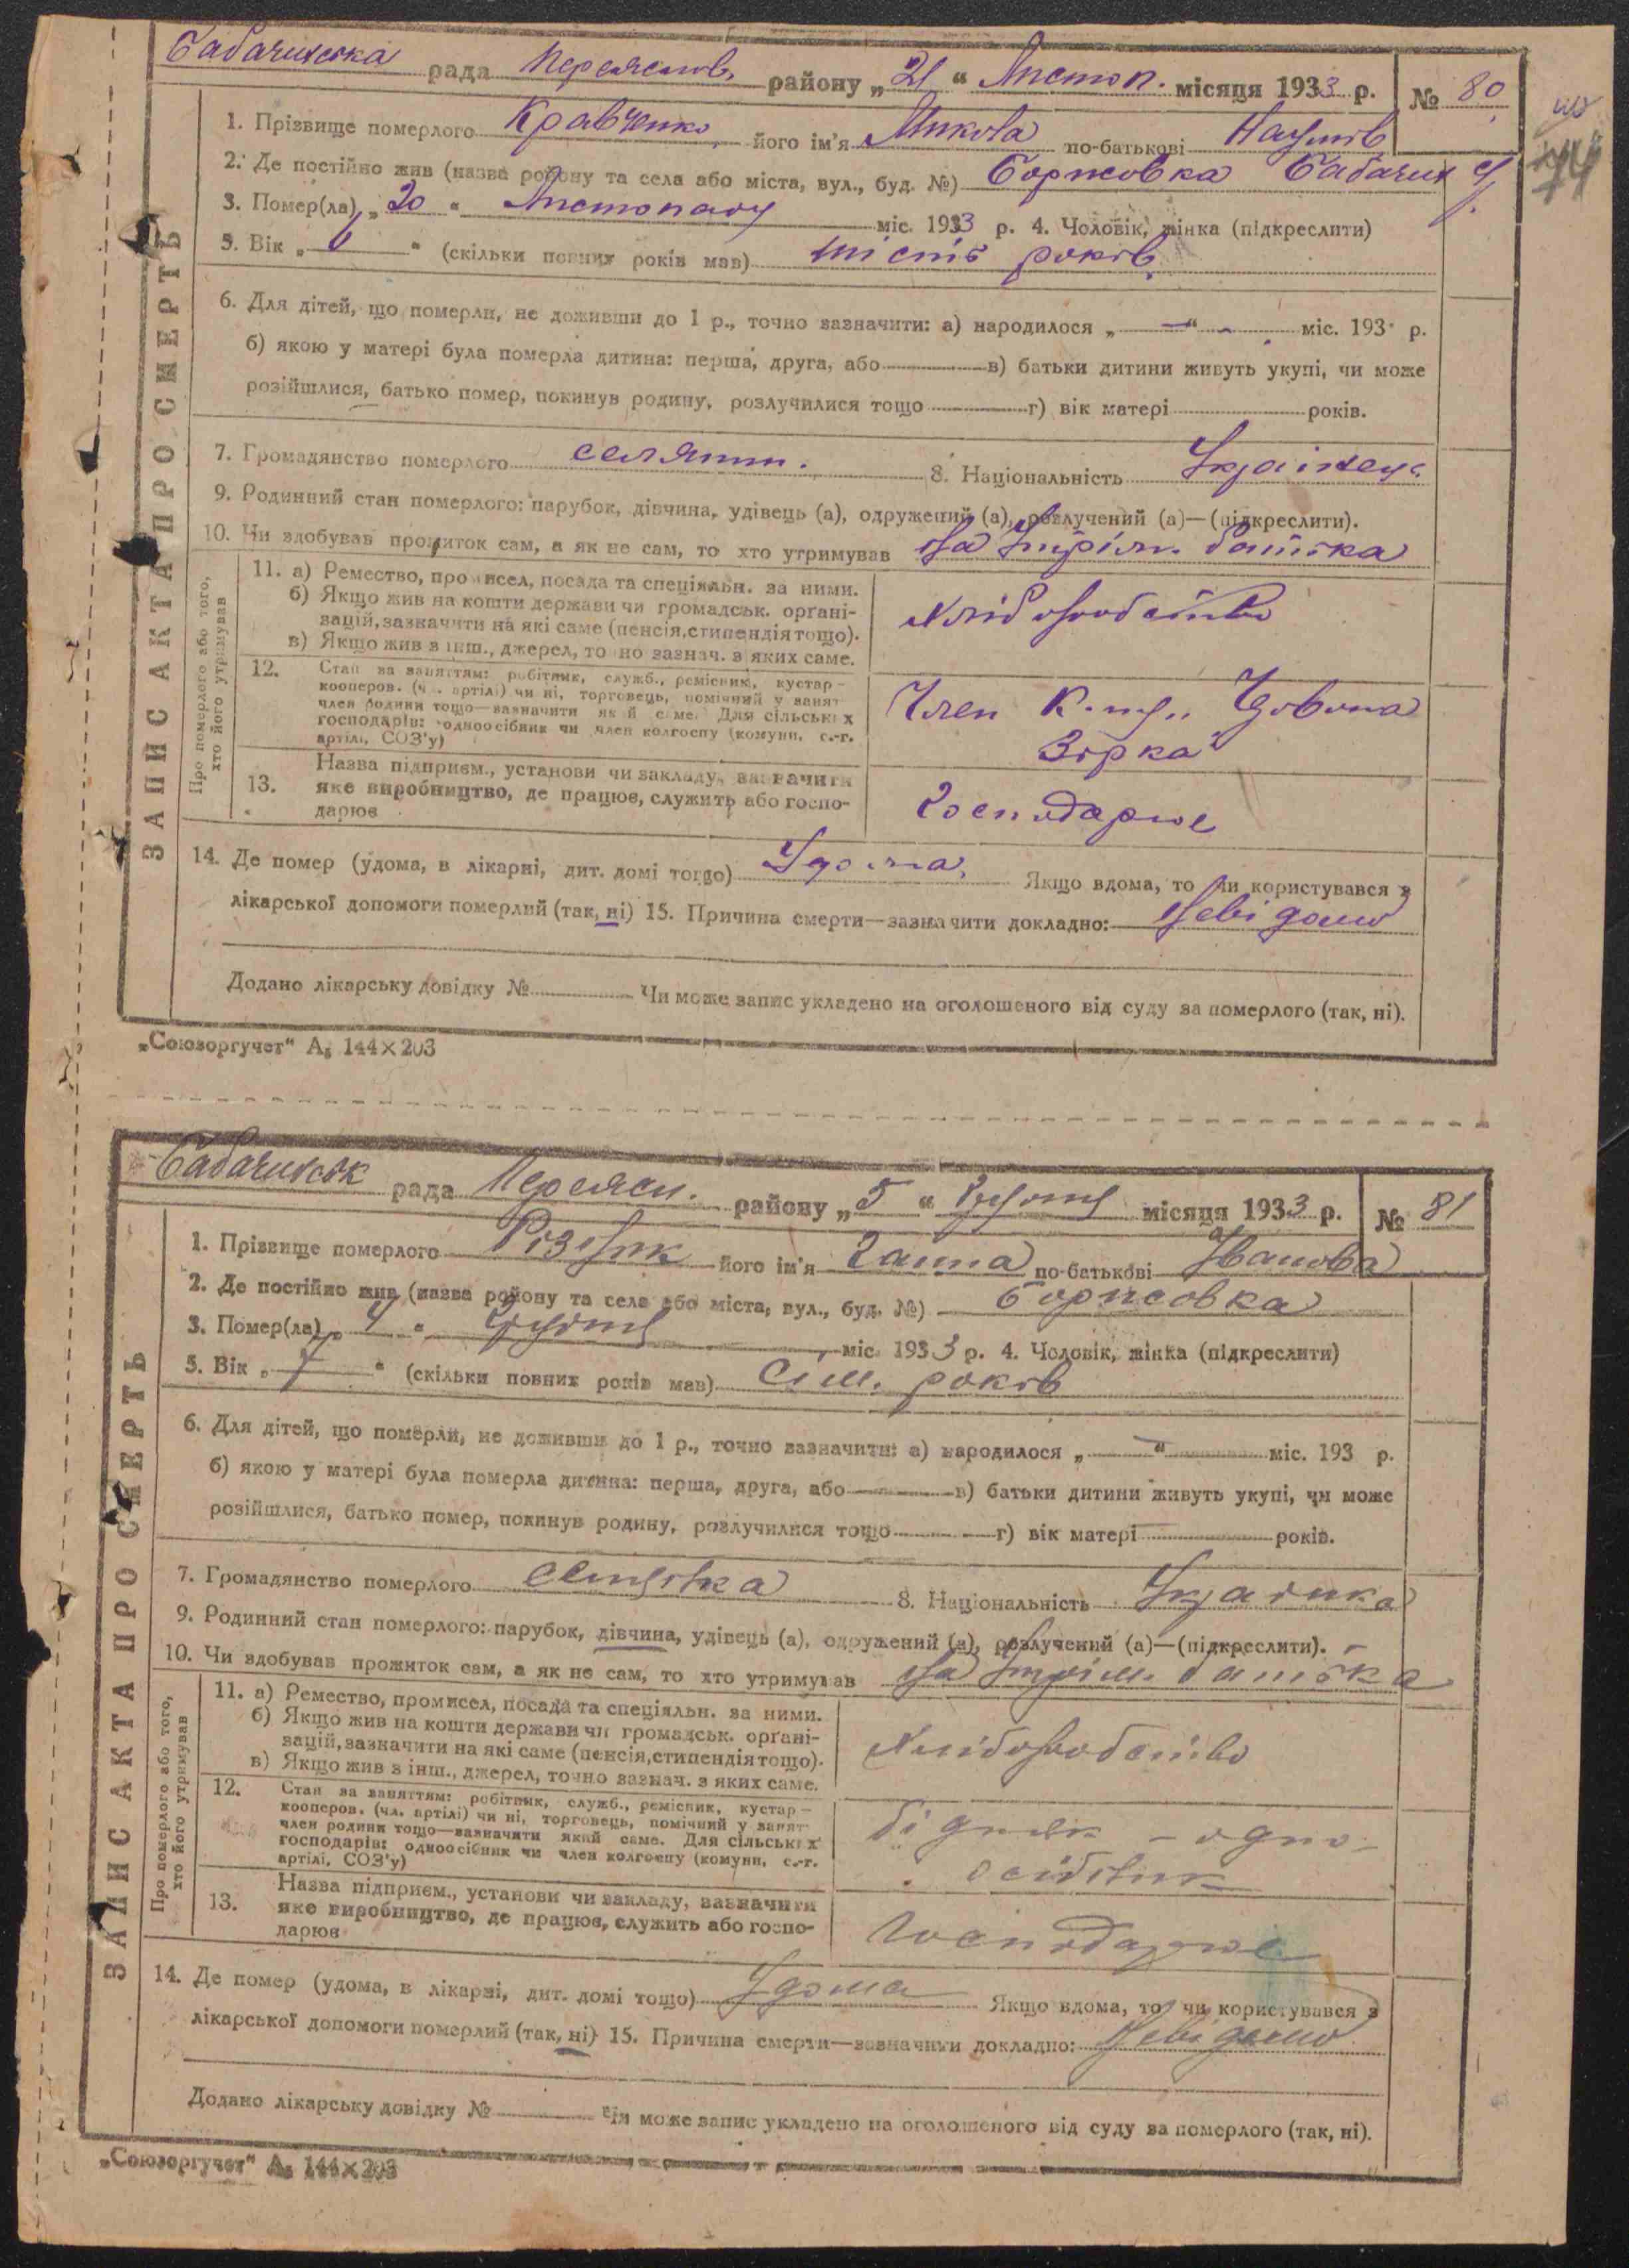 Бабачиховська рада Переяслов. району „21“ Листоп. місяця 1933 р. № 80
1. Прізвище померлого Кравченко його ім'я Микола по-батькові Наумов.
2. Де постійно жив (назва району та села або міста, вул., буд. №) Борисовка Бабачих
3. Помер(ла) „20“ Листопаду міс. 1933 р. 4. Чоловік, жінка (підкреслити)
5. Вік „6“ (скільки повних років мав) шість років.
6. Для дітей, що померли, не доживши до 1 р., точно зазначити: а) народилося „—“ міс. 193 р.
б) якою у матері була померла дитина: перша, друга, або в) батьки дитини живуть укупі, чи може
розійшлися, батько помер, покинув родину, розлучилися тощо г) вік матері років.
7. Громадянство померлого селянин. 8. Національність Українець
9. Родинний стан померлого: парубок, дівчина, удівець (а), одружений (а), розлучений (а)—(підкреслити).
10. Чи здобував прожиток сам, а як не сам, то хто утримував На Утрім. батька
ЗАПИС АКТА ПРО СМЕРТЬ
Про померлого або того,
хто його утримував
11. а) Ремество, промисел, посада та спеціяльн. за ними.
б) Якщо жив на кошти держави чи громадськ. органі-
зацій, зазначити на які саме (пенсія, стипендія тощо).
в) Якщо жив з інш., джерел, точно зазнач. з яких саме.
Хлібозробство
12. Стан за заняттям: робітник, служб., ремісник, кустар—
кооперов. (чл. артілі) чи ні, торговець, помічний у занят
член родини тощо—зазначити який саме. Для сільських
господарів: одноосібник чи член колгоспу (комуни, с.-г.
артілі, СОЗ'у)
Член
Зірка
13. Назва підприєм., установи чи закладу, зазначити
яке виробництво, де працює, служить або госпо-
дарює
Господарює
14. Де помер (удома, в лікарні, дит. домі тощо) Удома. Якщо вдома, то чи користувався з
лікарської допомоги померлий (так, ні) 15. Причина смерти—зазначити докладно: Невідомо
Додано лікарську довідку № Чи може запис укладено на оголошеного від суду за померлого (так, ні).
„Союзоргучет“ А5 144×203
Бабачиховськ рада Переясл. району „5“ Грудня місяця 1933 р. № 81
1. Прізвище померлого Різник його ім'я Ганна по-батькові Іванова
2. Де постійно жив (назва району та села або міста, вул., буд. №) Борисовка
3. Помер(ла) „4“ Грудня міс. 1933 р. 4. Чоловік, жінка (підкреслити)
5. Вік „7“ (скільки повних років мав) Сім. років
6. Для дітей, що померли, не доживши до 1 р., точно зазначити: а) народилося „—“ міс. 193 р.
б) якою у матері була померла дитина: перша, друга, або в) батьки дитини живуть укупі, чи може
розійшлися, батько помер, покинув родину, розлучилися тощо г) вік матері років.
7. Громадянство померлого селянка 8. Національність Українка
9. Родинний стан померлого: парубок, дівчина, удівець (а), одружений (а), розлучений (а)—(підкреслити).
10. Чи здобував прожиток сам, а як не сам, то хто утримував На Утрім. батька
ЗАПИС АКТА ПРО СМЕРТЬ
Про померлого або того,
хто його утримував
11. а) Ремество, промисел, посада та спеціяльн. за ними.
б) Якщо жив на кошти держави чи громадськ. органі-
зацій, зазначити на які саме (пенсія, стипендія тощо).
в) Якщо жив з інш., джерел, точно зазнач. з яких саме.
Хлібозробство
12. Стан за заняттям: робітник, служб., ремісник, кустар—
кооперов. (чл. артілі) чи ні, торговець, помічний у занят
член родини тощо—зазначити який саме. Для сільських
господарів: одноосібник чи член колгоспу (комуни, с.-г.
артілі, СОЗ'у)
Бідняк – одно-
осібник
13. Назва підприєм., установи чи закладу, зазначити
яке виробництво, де працює, служить або госпо-
дарює
Господарює
14. Де помер (удома, в лікарні, дит. домі тощо) Удома Якщо вдома, то чи користувався з
лікарської допомоги померлий (так, ні) 15. Причина смерти—зазначити докладно: Невідомо
Додано лікарську довідку № Чи може запис укладено на оголошеного від суду за померлого (так, ні).
„Союзоргучет“ А5 144×203